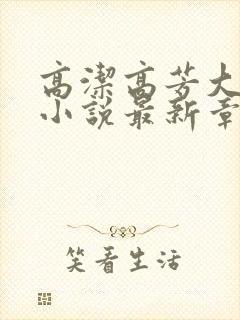 高潔高芳大
小說最新章
笑看生活